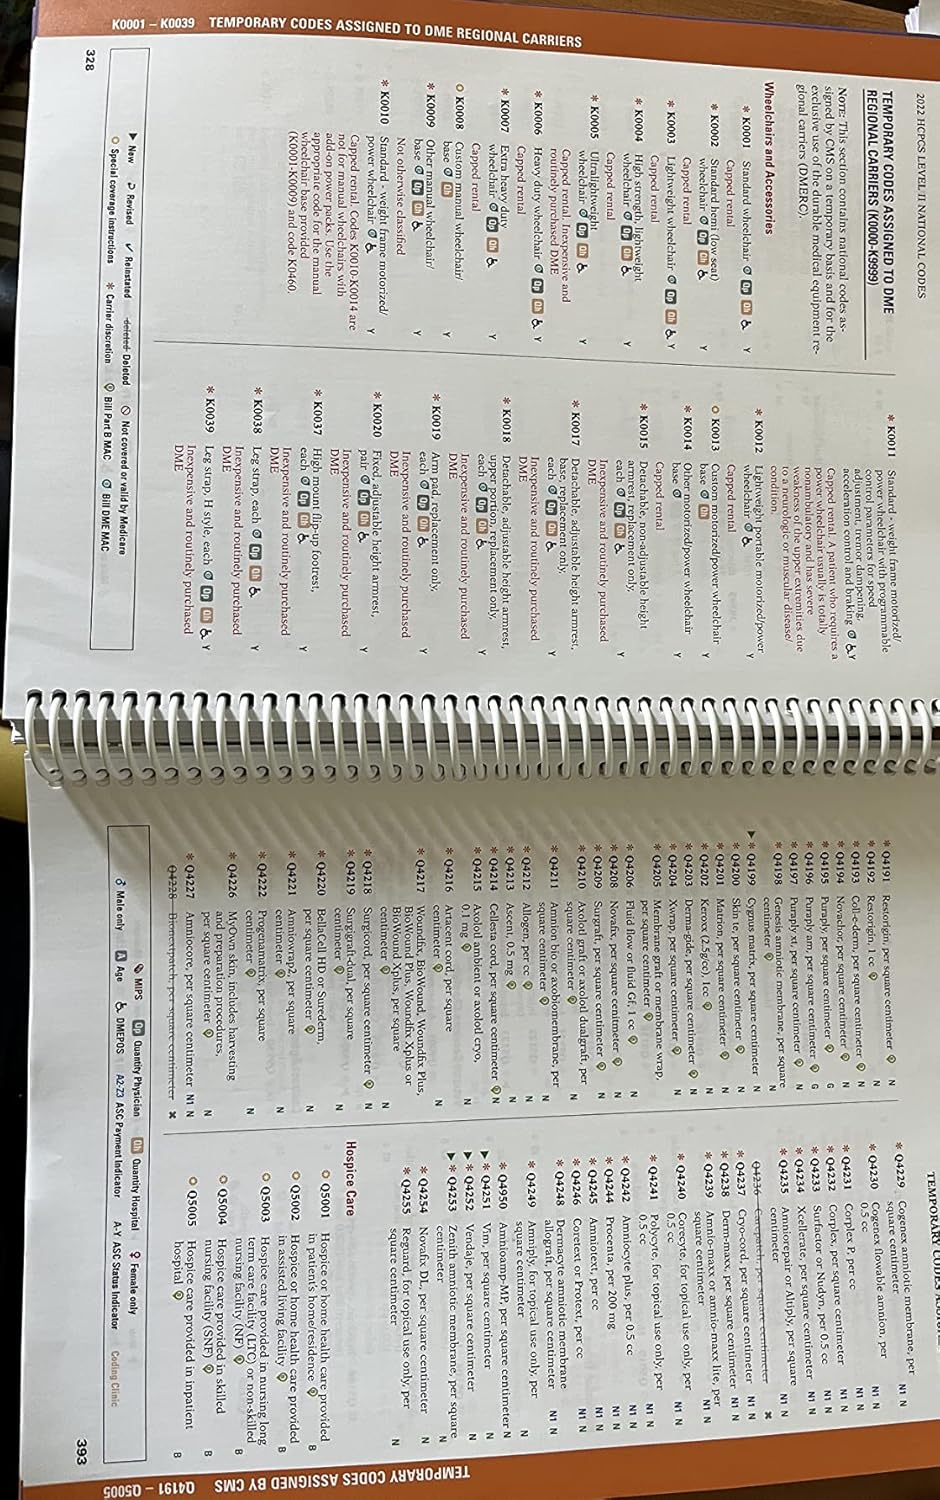 K0001 – K0039 TEMPORARY CODES ASSIGNED TO DME REGIONAL CARRIERS
2022 HCPCS LEVEL II NATIONAL CODES
TEMPORARY CODES ASSIGNED TO DME
REGIONAL CARRIERS (K0000-K9999)
NOTE: This section contains national codes as-
signed by CMS on a temporary basis and for the
exclusive use of the durable medical equipment re-
gional carriers (DMERC).
Wheelchairs and Accessories
* K0001 Standard wheelchair Qp Qh Y
Capped rental
* K0002 Standard hemi (low seat)
wheelchair Qp Qh Y
Capped rental
* K0003 Lightweight wheelchair Qp Qh Y
Capped rental
* K0004 High strength, lightweight
wheelchair Qp Qh Y
Capped rental
* K0005 Ultralightweight
wheelchair Qp Qh Y
Capped rental. Inexpensive and
routinely purchased DME
* K0006 Heavy duty wheelchair Qp Qh Y
Capped rental
* K0007 Extra heavy duty
wheelchair Qp Qh Y
Capped rental
K0008 Custom manual wheelchair/
base Qh Y
* K0009 Other manual wheelchair/
base Qp Qh Y
Not otherwise classified
* K0010 Standard - weight frame motorized/
power wheelchair Y
Capped rental. Codes K0010-K0014 are
not for manual wheelchairs with
add-on power packs. Use the
appropriate code for the manual
wheelchair base provided
(K0001-K0009) and code K0460.
* K0011 Standard - weight frame motorized/
power wheelchair with programmable
control parameters for speed
adjustment, tremor dampening,
acceleration control and braking Y
Capped rental. A patient who requires a
power wheelchair usually is totally
nonambulatory and has severe
weakness of the upper extremities due
to a neurologic or muscular disease/
condition.
* K0012 Lightweight portable motorized/power
wheelchair Y
Capped rental
K0013 Custom motorized/power wheelchair
base Qh Y
* K0014 Other motorized/power wheelchair
base Y
Capped rental
* K0015 Detachable, non-adjustable height
armrest, replacement only,
each Qp Qh Y
Inexpensive and routinely purchased
DME
* K0017 Detachable, adjustable height armrest,
base, replacement only,
each Qp Qh Y
Inexpensive and routinely purchased
DME
* K0018 Detachable, adjustable height, armrest,
upper portion, replacement only,
each Qp Qh Y
Inexpensive and routinely purchased
DME
* K0019 Arm pad, replacement only,
each Qp Qh Y
Inexpensive and routinely purchased
DME
* K0020 Fixed, adjustable height armrest,
pair Qp Qh Y
Inexpensive and routinely purchased
DME
* K0037 High mount flip-up footrest,
each Qp Qh Y
Inexpensive and routinely purchased
DME
* K0038 Leg strap, each Qp Qh Y
Inexpensive and routinely purchased
DME
* K0039 Leg strap, H style, each Qp Qh Y
Inexpensive and routinely purchased
DME
New Revised Reinstated deleted Deleted Not covered or valid by Medicare
Special coverage instructions * Carrier discretion Bill Part B MAC Bill DME MAC
328
* Q4191 Restorigin, per square centimeter N
* Q4192 Restorigin, 1 cc N
* Q4193 Coll-e-derm, per square centimeter N
* Q4194 Novachor, per square centimeter N
* Q4195 Puraply, per square centimeter G
* Q4196 Puraply am, per square centimeter G
* Q4197 Puraply xt, per square centimeter N
* Q4198 Genesis amniotic membrane, per square
centimeter N
* Q4199 Cygnus matrix, per square centimeter N
* Q4200 Skin te, per square centimeter N
* Q4201 Matrion, per square centimeter N
* Q4202 Keroxx (2.5g/cc) 1cc N
* Q4203 Derma-gide, per square centimeter N
* Q4204 Xwrap, per square centimeter N
* Q4205 Membrane graft or membrane wrap,
per square centimeter N
* Q4206 Fluid flow or fluid GF, 1 cc N
* Q4208 Novafix, per square cenitmeter N
* Q4209 Surgraft, per square centimeter N
* Q4210 Axolotl graft or axolotl dualgraft, per
square centimeter N
* Q4211 Amnion bio or axobiomembrane, per
square centimeter N
* Q4212 Allogen, per cc N
* Q4213 Ascent, 0.5 mg N
* Q4214 Cellesta cord, per square centimeter N
* Q4215 Axolotl ambient or axolotl cryo,
0.1 mg N
* Q4216 Artacent cord, per square
centimeter N
* Q4217 Woundfix, BioWound, Woundfix Plus,
BioWound Plus, Woundfix Xplus or
BioWound Xplus, per square
centimeter N
* Q4218 Surgicord, per square centimeter N
* Q4219 Surgigraft-dual, per square
centimeter N
* Q4220 BellaCell HD or Surederm,
per square centimeter N
* Q4221 Amniowrap2, per square
centimeter N
* Q4222 Progenamatrix, per square
centimeter N
* Q4226 MyOwn skin, includes harvesting
and preparation procedures,
per square centimeter N
* Q4227 Amniocore, per square centimeter N1 N
Q4228 Bionextpatch, per square centimeter ✖
* Q4229 Cogenex amniotic membrane, per
square centimeter N1 N
* Q4230 Cogenex flowable amnion, per
0.5 cc N1 N
* Q4231 Corplex P, per cc N1 N
* Q4232 Corplex, per square centimeter N1 N
* Q4233 Surfactor or Nudyn, per 0.5 cc N1 N
* Q4234 Xcellerate, per square centimeter N1 N
* Q4235 Amniorepair or Altiply, per square
centimeter N1 N
Q4236 Carepatch, per square centimeter ✖
* Q4237 Cryo-cord, per square centimeter N1 N
* Q4238 Derm-maxx, per square centimeter N1 N
* Q4239 Amnio-maxx or amnio-maxx lite, per
square centimeter N1 N
* Q4240 Corecyte, for topical use only, per
0.5 cc N1 N
* Q4241 Polycyte, for topical use only, per
0.5 cc N1 N
* Q4242 Amniocyte plus, per 0.5 cc N1 N
* Q4244 Procenta, per 200 mg N1 N
* Q4245 Amniotext, per cc N1 N
* Q4246 Coretext or Protext, per cc N1 N
* Q4248 Dermacyte amniotic membrane
allograft, per square centimeter N1 N
* Q4249 Amniply, for topical use only, per
square centimeter N
* Q4950 Amnioamp-MP, per square centimeter N
* Q4251 Vim, per square centimeter N
* Q4252 Vendaje, per square centimeter N
* Q4253 Zenith amniotic membrane, per square
centimeter N
* Q4254 Novafix DL, per square centimeter N
* Q4255 Reguard, for topical use only, per
square centimeter N
Hospice Care
Q5001 Hospice or home health care provided
in patient's home/residence B
Q5002 Hospice or home health care provided
in assisted living facility B
Q5003 Hospice care provided in nursing long
term care facility (LTC) or non-skilled
nursing facility (NF) B
Q5004 Hospice care provided in skilled
nursing facility (SNF) B
Q5005 Hospice care provided in inpatient
hospital B
MIPS Qp Quantity Physician Qh Quantity Hospital ♀ Female only
♂ Male only A Age DMEPOS A2-Z3 ASC Payment Indicator A-Y ASC Status Indicator Coding Clinic
393
TEMPORARY CODES ASSIGNED BY CMS Q4191 – Q5005